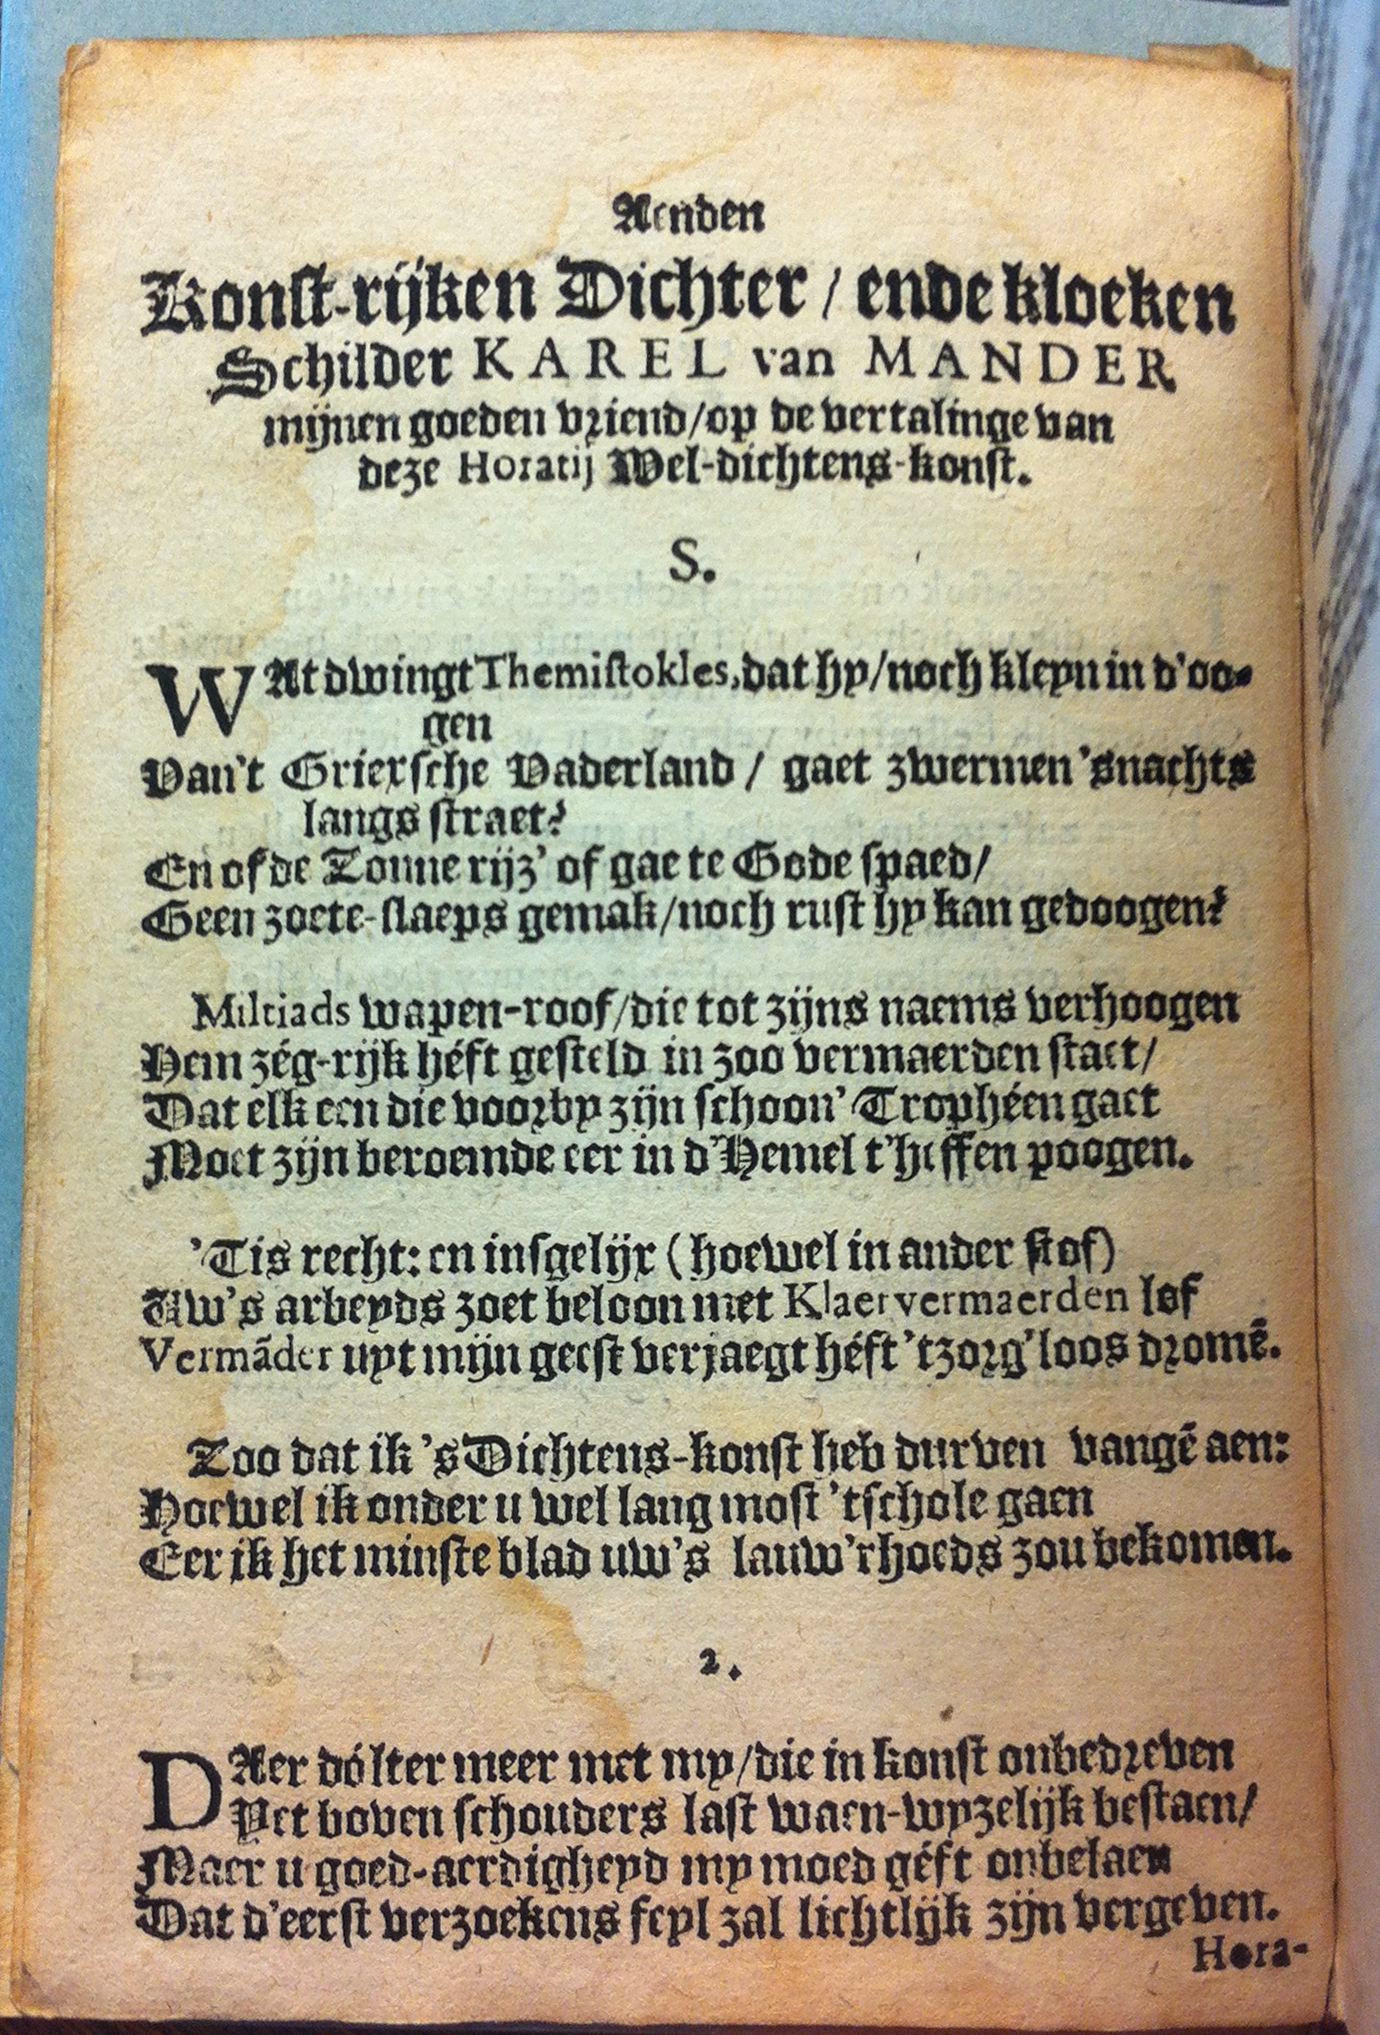 Aenden
Konst-rijken Dichter / ende kloeken
Schilder KAREL van MANDER
mijnen goeden vriend/op de vertalinge van
deze Horatij Wel-dichtens-konst.
S.
WAt dwingt Themistokles, dat hy/noch kleyn in d'oo-
gen
Van't Grierche Vaderland / gaet zwermen 'snachts
langs straet?
En of de Zonne rijz' of gae te Gode spaed/
Geen zoete-slaeps gemak/noch rust hy kan gedoogen?
Miltiads wapen-roof/die tot zijns naems verhoogen
Hem zég-rijk héft gesteld in zoo vermaerden staet/
Dat elk een die voorby zijn schoon' Trophéen gaet
Moet zijn beroemde eer in d'Hemel t'heffen poogen.
'Tis recht: en insgelijx (hoewel in ander stof)
Uw's arbeyds zoet beloon met Klaervermaerden lof
Vermãder uyt mijn geest verjaegt héft 'tzorg'loos dromẽ.
Zoo dat ik 's Dichtens-konst heb durven vangẽ aen:
Hoewel ik onder u wel lang most 'tschole gaen
Eer ik het minste blad uw's lauw'rhoeds zou bekomen.
2.
DAer dólter meer met my/die in konst onbedreven
Yet boven schouders last waen-wyzelijk bestaen/
Maer u goed-aerdigheyd my moed géft onbelaen
Dat d'eerst verzoekens feyl zal lichtlijk zijn vergeven.
Hora-